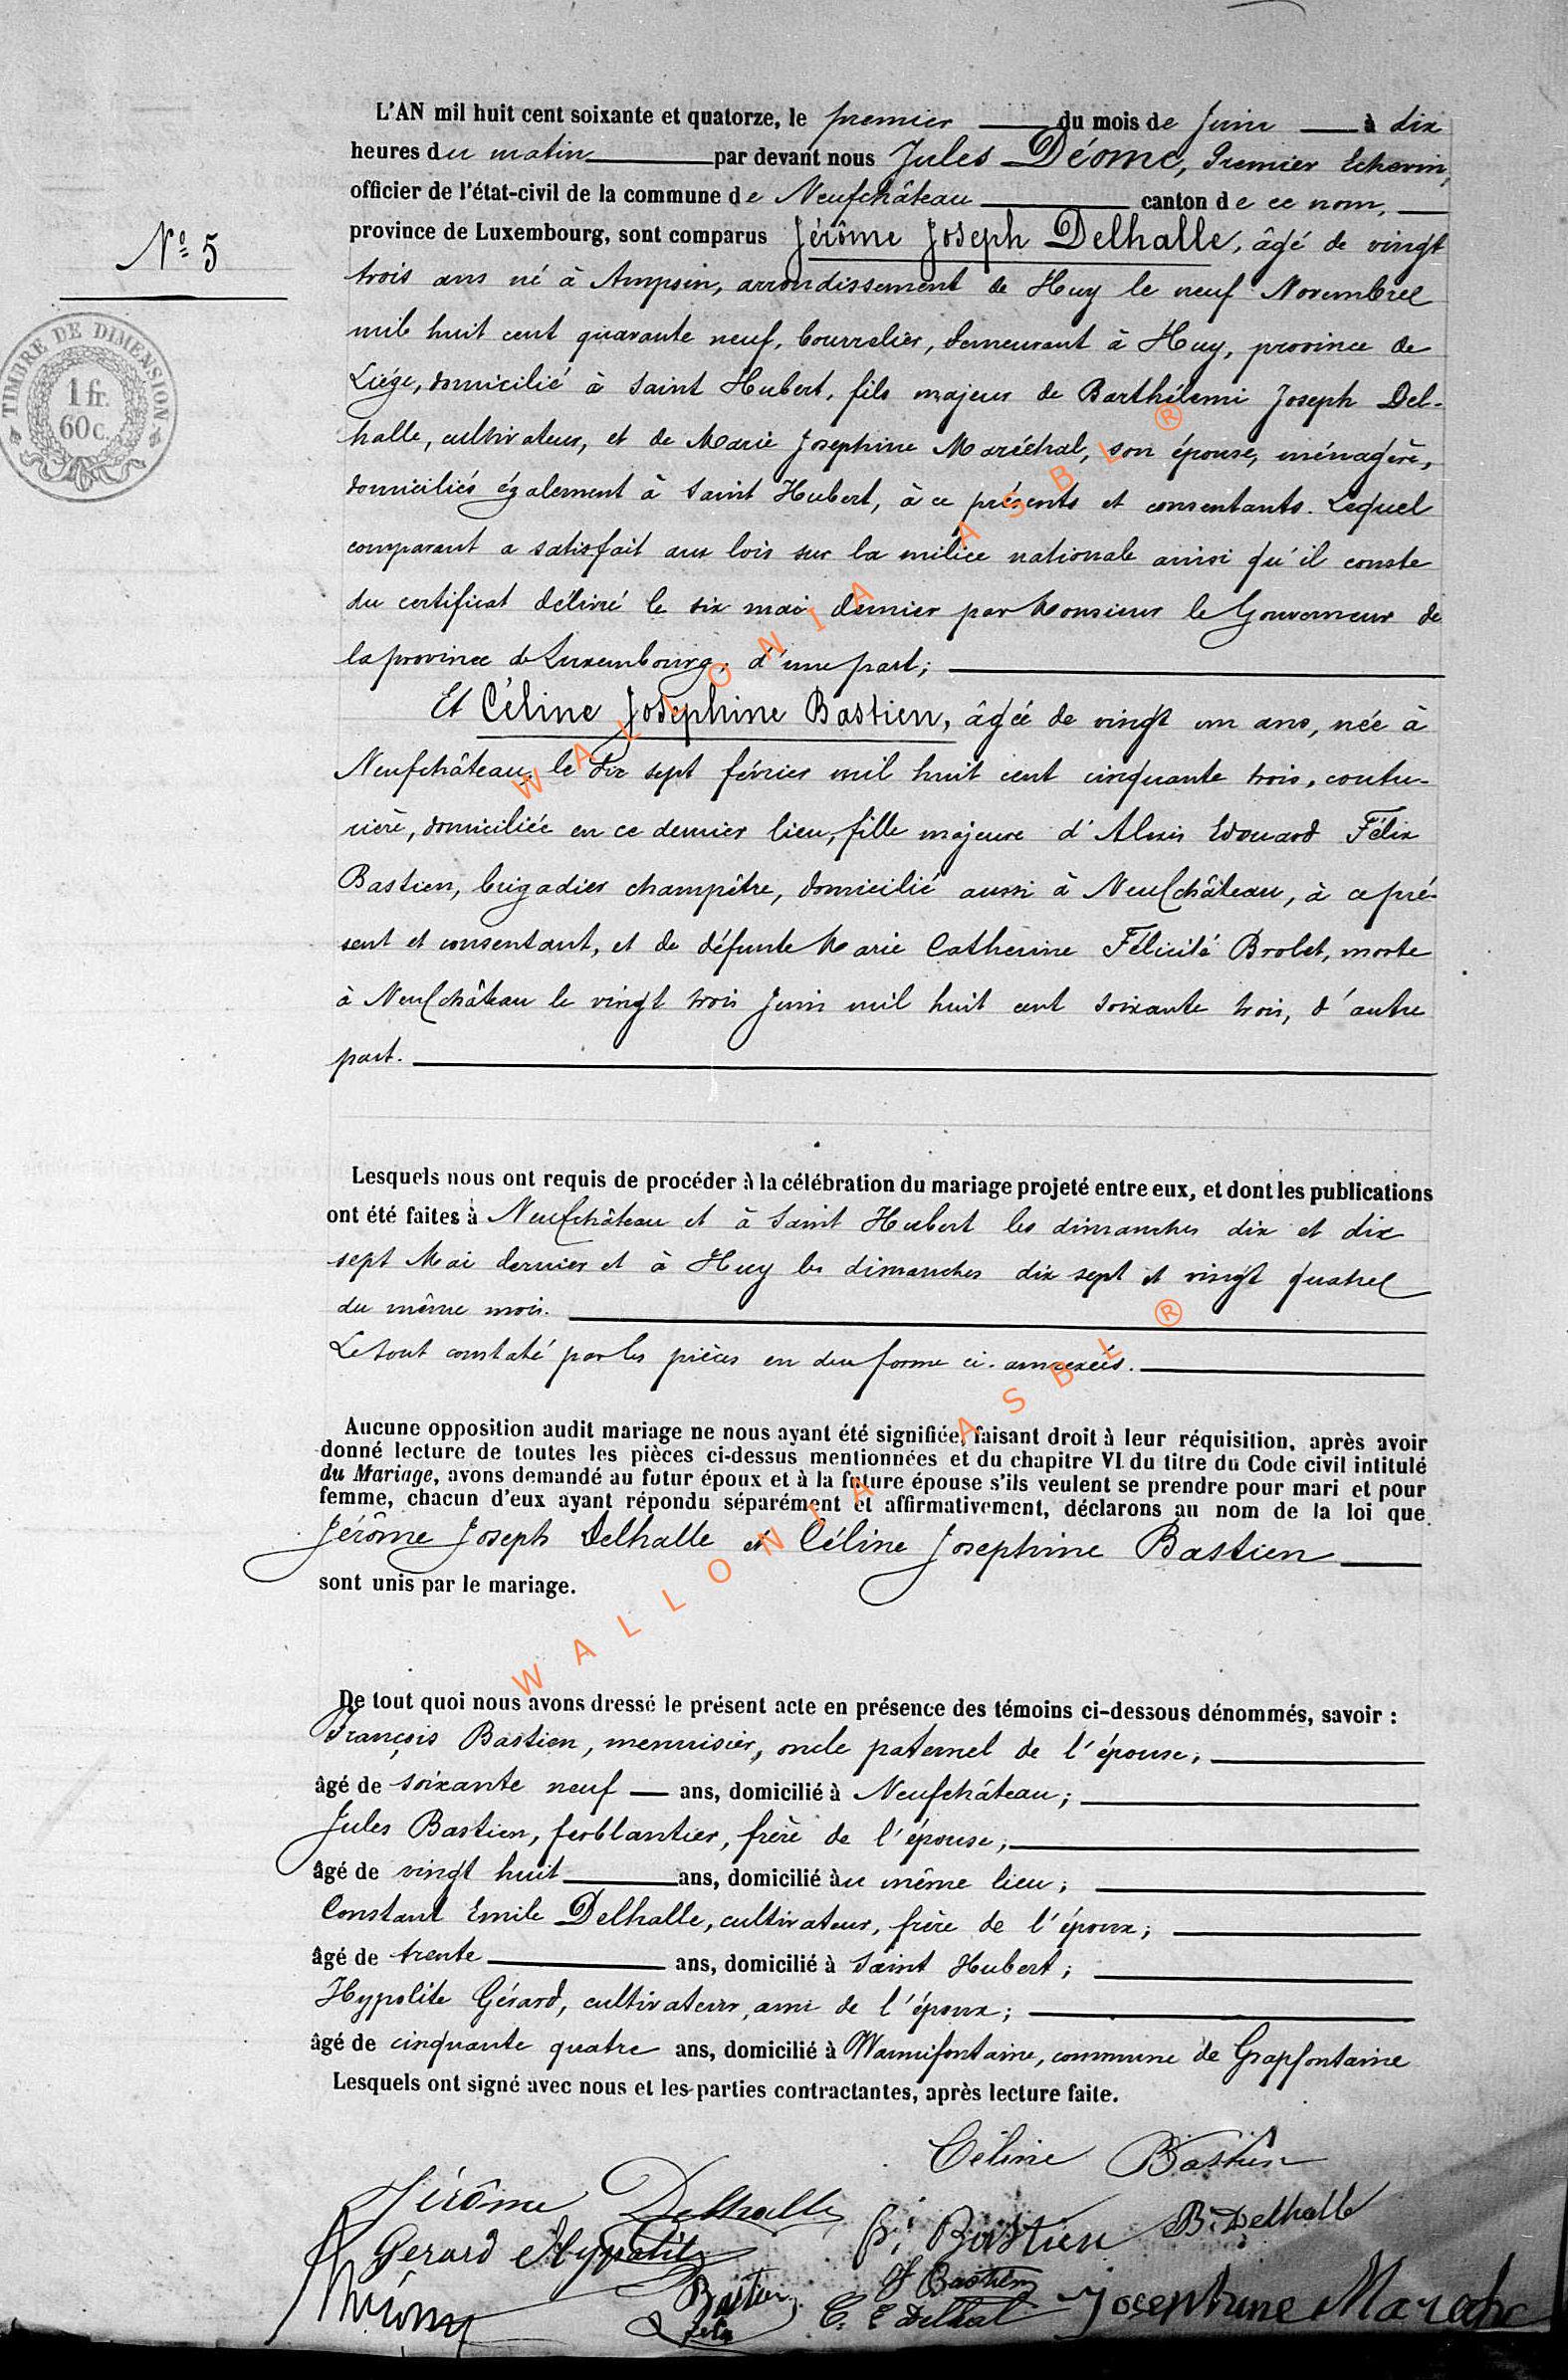 L'AN mil huit cent soixante et quatorze, le premier du mois de Juin à dix
heures du matin par devant nous Jules Déome, Premier Echevin,
officier de l'état-civil de la commune de Neufchâteau canton de ce nom,
province de Luxembourg, sont comparus Jérôme Joseph Delhalle, âgé de vingt
N° 5
trois ans né à Ampsin, arrondissement de Huy le neuf Novembre
mil huit cent quarante neuf, bourrelier, demeurant à Huy, province de
TIMBRE DE DIMENSION
1 fr.
60 c.
Liége, domicilié à Saint Hubert, fils majeur de Barthélemi Joseph Del-
halle, cultivateur, et de Marie Josephine Maréchal, son épouse, ménagère,
domiciliés également à Saint Hubert, à ce présents et consentants. Lequel
comparant a satisfait aux lois sur la milice nationale ainsi qu'il conste
du certificat délivré le six mai dernier par Monsieur le Gouverneur de
la province de Luxembourg, d'une part;
Et Céline Josephine Bastien, âgée de vingt un ans, née à
Neufchâteau, le dix sept février mil huit cent cinquante trois, coutu-
rière, domiciliée en ce dernier lieu, fille majeure d'Alexis Edouard Félix
Bastien, brigadier champêtre, domicilié aussi à Neufchâteau, à ce pré-
sent et consentant, et de défunte Marie Catherine Félicité Brolet, morte
à Neufchâteau le vingt trois Juin mil huit cent soixante trois, d'autre
part.
Lesquels nous ont requis de procéder à la célébration du mariage projeté entre eux, et dont les publications
ont été faites à Neufchâteau et à Saint Hubert les dimanches dix et dix
sept Mai dernier et à Huy les dimanches dix sept et vingt quatre
du même mois.
Le tout constaté par les pièces en due forme ci-annexées.
Aucune opposition audit mariage ne nous ayant été signifiée, faisant droit à leur réquisition, après avoir
donné lecture de toutes les pièces ci-dessus mentionnées et du chapitre VI du titre du Code civil intitulé
du Mariage, avons demandé au futur époux et à la future épouse s'ils veulent se prendre pour mari et pour
femme, chacun d'eux ayant répondu séparément et affirmativement, déclarons au nom de la loi que
Jérôme Joseph Delhalle et Céline Josephine Bastien
sont unis par le mariage.
De tout quoi nous avons dressé le présent acte en présence des témoins ci-dessous dénommés, savoir :
François Bastien, menuisier, oncle paternel de l'épouse,
âgé de soixante neuf ans, domicilié à Neufchâteau;
Jules Bastien, ferblantier, frère de l'épouse,
âgé de vingt huit ans, domicilié au même lieu;
Constant Emile Delhalle, cultivateur, frère de l'époux;
âgé de trente ans, domicilié à Saint Hubert;
Hypolite Gérard, cultivateur, ami de l'époux;
âgé de cinquante quatre ans, domicilié à Warmifontaine, commune de Grapfontaine
Lesquels ont signé avec nous et les parties contractantes, après lecture faite.
Céline Bastien
Jérôme Delhalle
Gerard Hypolite
fr: Bastien B. Delhalle
Bastien J Bastien
C. E Delhal Josephine Marech
WALLONIA ASBL ®
WALLONIA ASBL ®